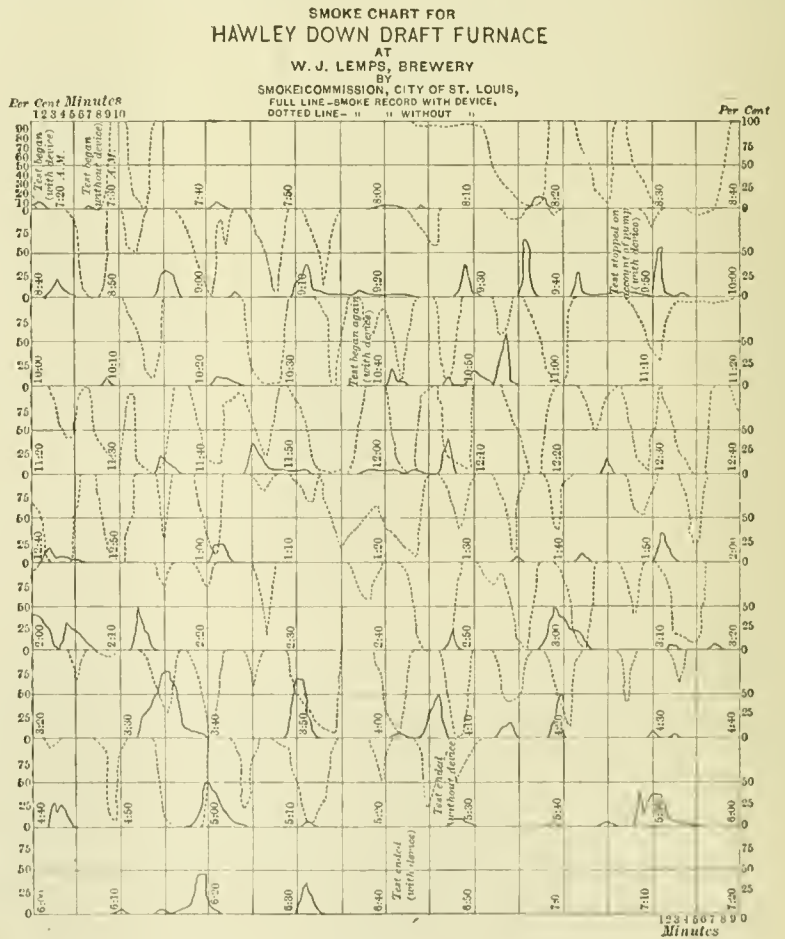 SMOKE CHART FOR
HAWLEY DOWN DRAFT FURNACE
AT
W. J. LEMPS, BREWERY
BY
SMOKE COMMISSION, CITY OF ST. LOUIS,
FULL LINE–SMOKE RECORD WITH DEVICE,
DOTTED LINE– " " WITHOUT "
Per Cent Minutes
1 2 3 4 5 6 7 8 9 10
Per Cent
90
100
75
50
25
0
Test began
(with device)
7:20 A.M.
Test began
without device)
7:30 A.M.
7:40
7:50
8:00
8:10
8:20
8:30
8:40
75
50
25
0
8:40
8:50
9:00
9:10
9:20
9:30
9:40
Test stopped on
account of pump
(with device)
9:50
10:00
50
25
0
75
50
25
0
10:00
10:10
10:20
10:30
Test began again
(with device)
10:40
10:50
11:00
11:10
11:20
50
25
0
75
50
25
0
11:20
11:30
11:40
11:50
12:00
12:10
12:20
12:30
12:40
50
25
0
75
50
25
0
12:40
12:50
1:00
1:10
1:20
1:30
1:40
1:50
2:00
50
25
0
75
50
25
0
2:00
2:10
2:20
2:30
2:40
2:50
3:00
3:10
3:20
50
25
0
75
50
25
0
3:20
3:30
3:40
3:50
4:00
4:10
4:20
4:30
4:40
50
25
0
75
50
25
0
4:40
4:50
5:00
5:10
5:20
Test ended
without device)
5:30
5:40
6:00
50
25
0
75
50
25
0
6:00
6:10
6:20
6:30
6:40
Test ended
(with device)
6:50
7:0
7:10
7:20
75
50
25
0
1 2 3 4 5 6 7 8 9 0
Minutes